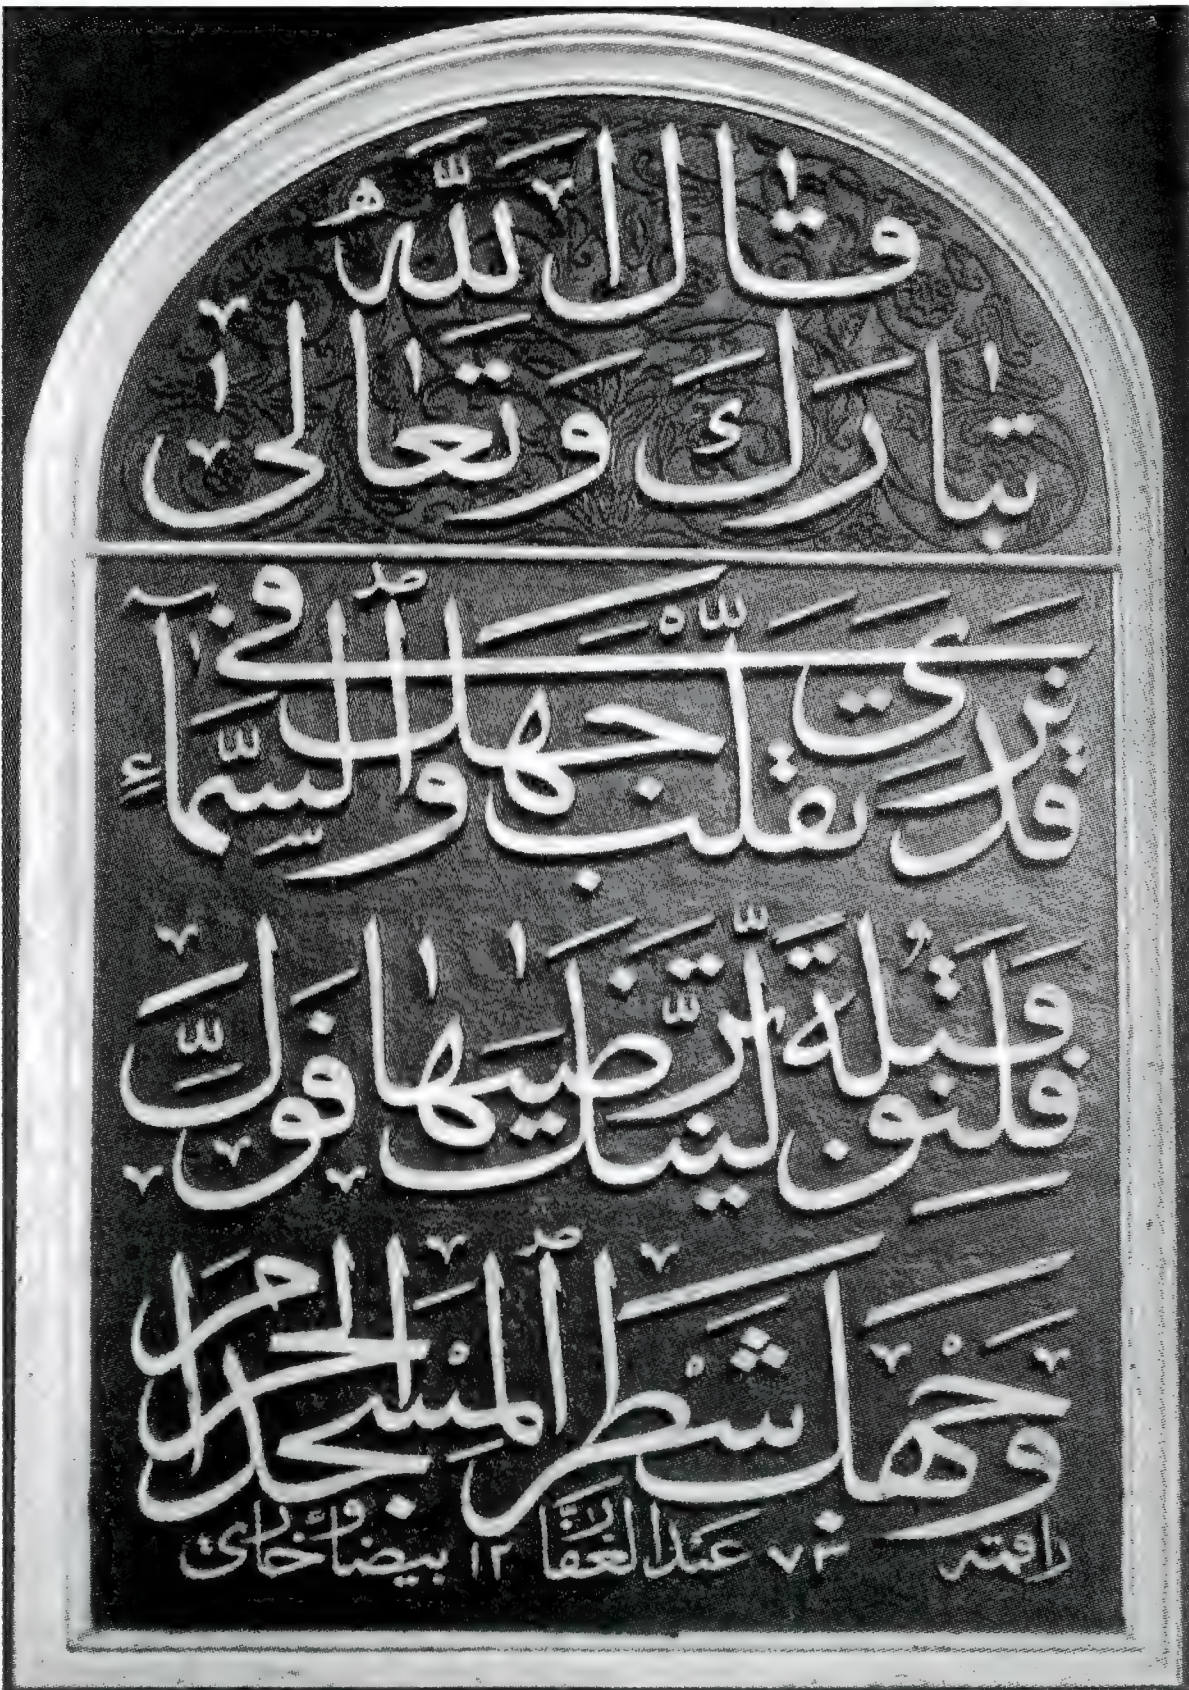 قَالَ اللّٰهُ
تَبَارَكَ وَتَعَالىٰ
قَدْ نَرَىٰ تَقَلُّبَ وَجْهِكَ فِي السَّمَآءِ
فَلَنُوَلِّيَنَّكَ قِبْلَةً تَرْضٰيهَا فَوَلِّ
وَجْهَكَ شَطْرَ الْمَسْجِدِ الْحَرَامِ
راقمه عبدالغفار بيضاخاوري ١٢٧٣